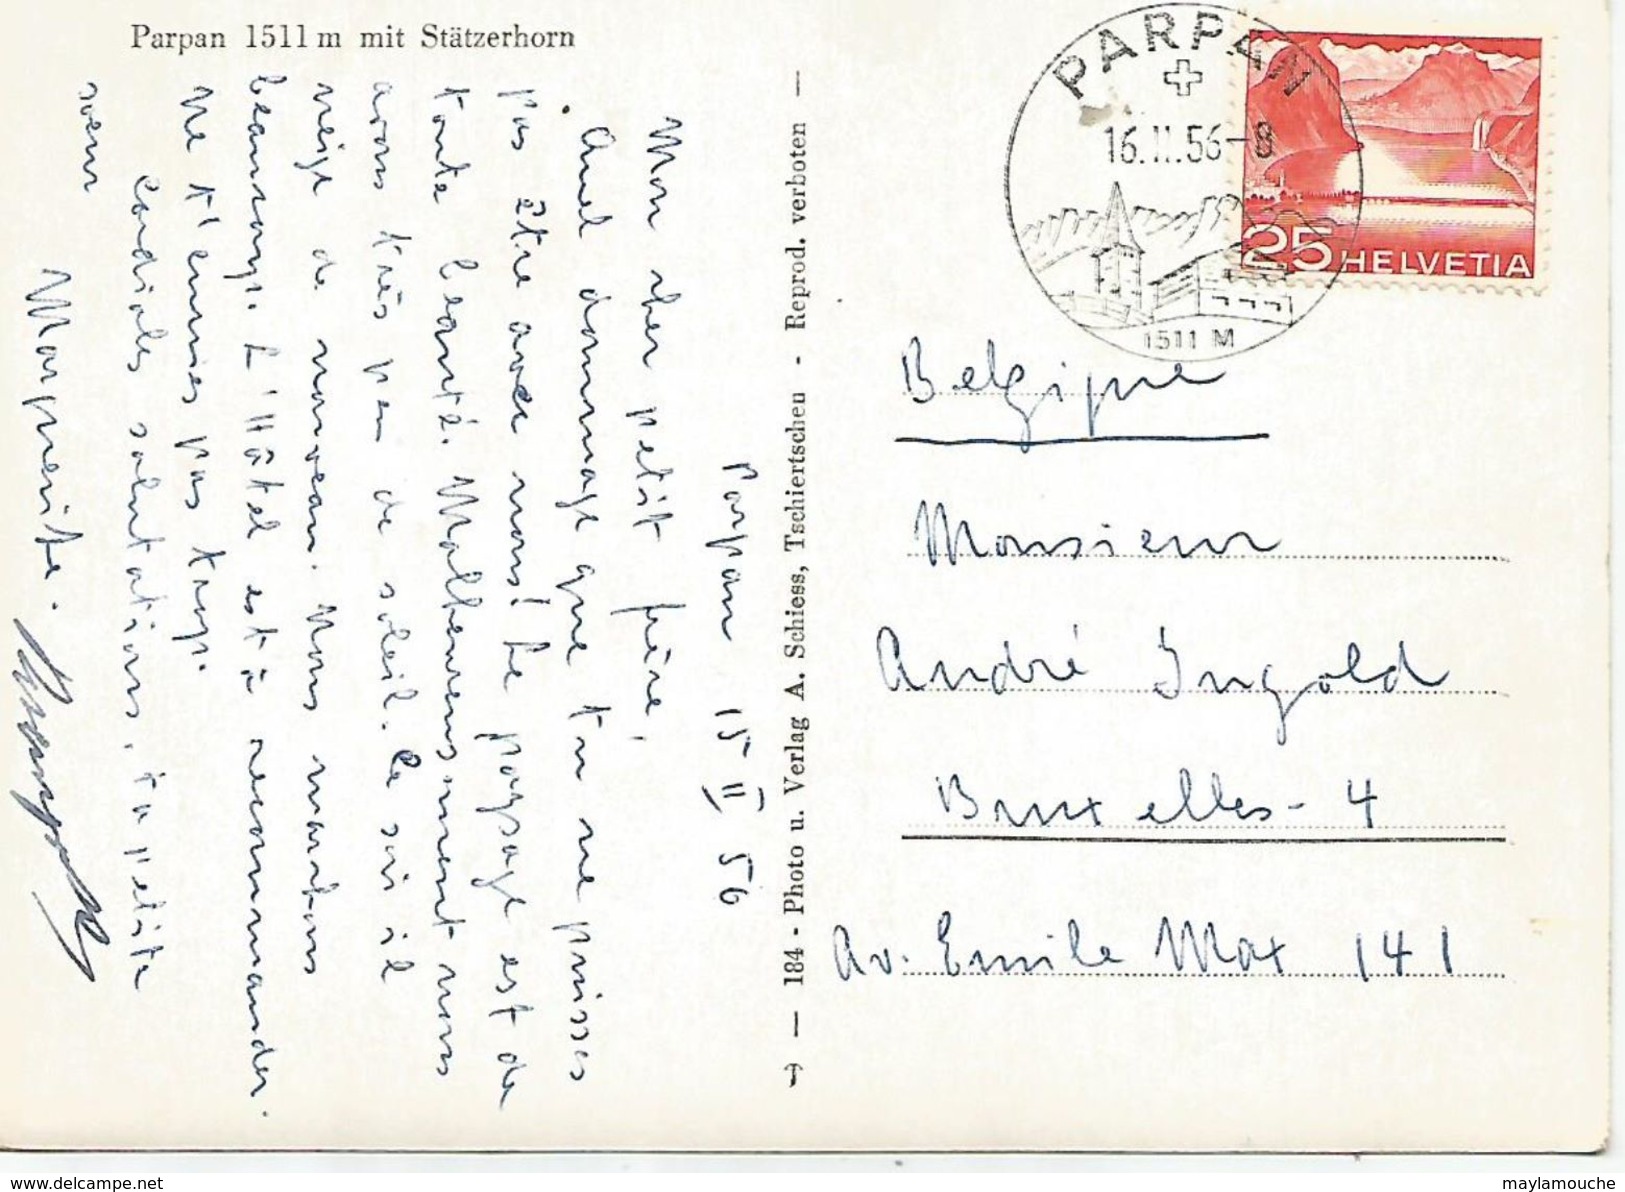 Parpan 1511 m mit Stätzerhorn
Parpan 15 II 56
Mon cher petit frère,
Quel dommage que tu ne puisses
pas être avec nous! Le paysage est de
toute beauté. Malheureusement nous
avons très peu de soleil. Ce soir il
neige de nouveau. Nous montons
beaucoup. L'Hôtel est à recommander.
Ne t'ennuies pas trop.
Cordiales salutations, ta petite
soeur
Marguerite.
— 184 - Photo u. Verlag A. Schiess, Tschiertschen - Reprod. verboten —
PARPAN
16.II.56-8
1511 M
25 HELVETIA
Belgique
Monsieur
André Ingold
Bruxelles-4
Av. Emile Max 141
www.delcampe.net
maylamouche